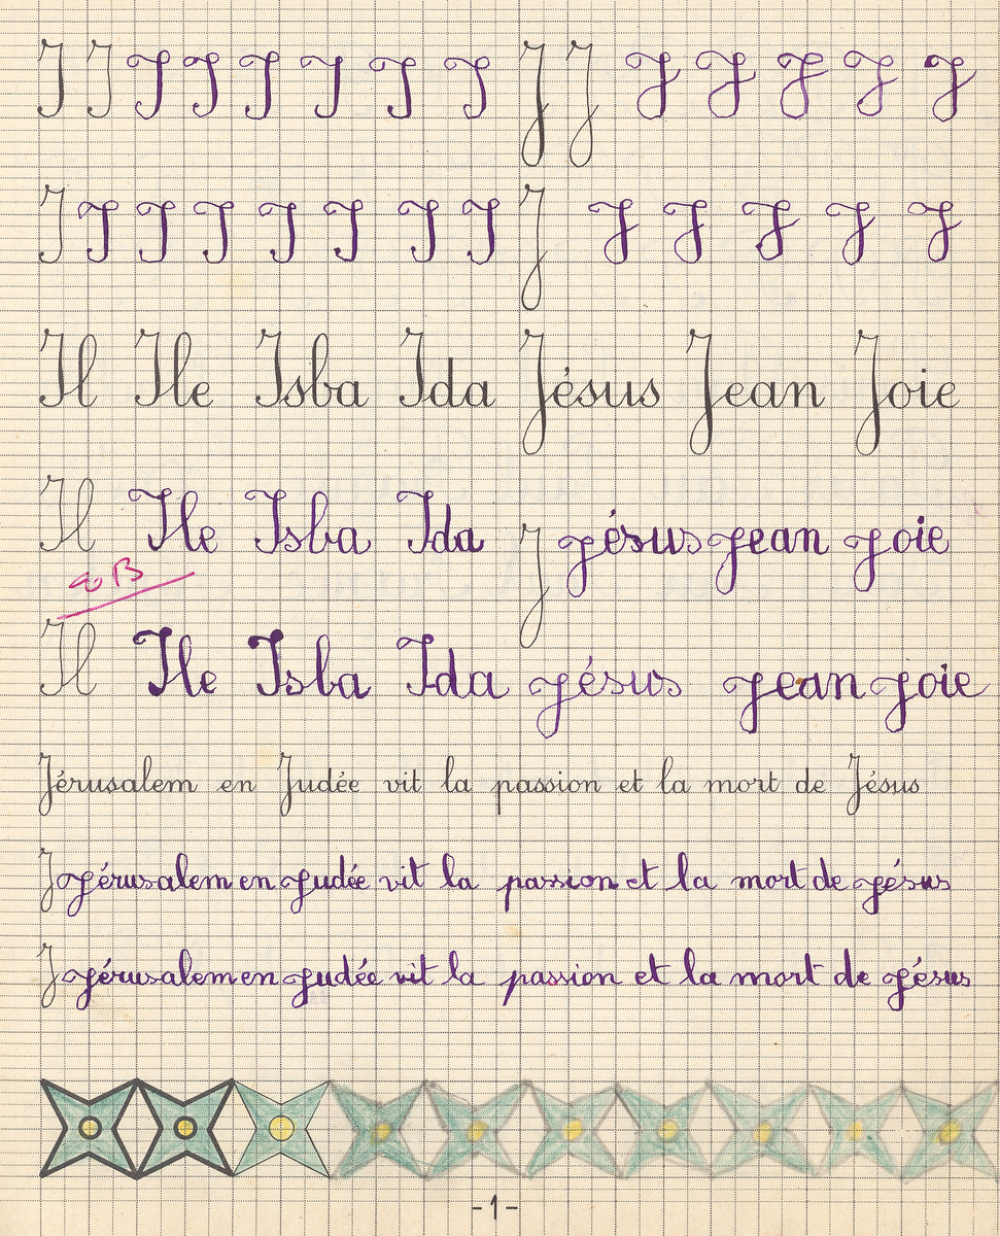 I I I I I I I I J J J J J J J
I I I I I I I I J J J J J J
Il Ile Isba Ida Jésus Jean Joie
Il Ile Isba Ida J Jésus Jean Joie
B
Il Ile Isba Ida Jésus Jean Joie
Jérusalem en Judée vit la passion et la mort de Jésus
J Jérusalem en Judée vit la passion et la mort de Jésus
J Jérusalem en Judée vit la passion et la mort de Jésus
-1-